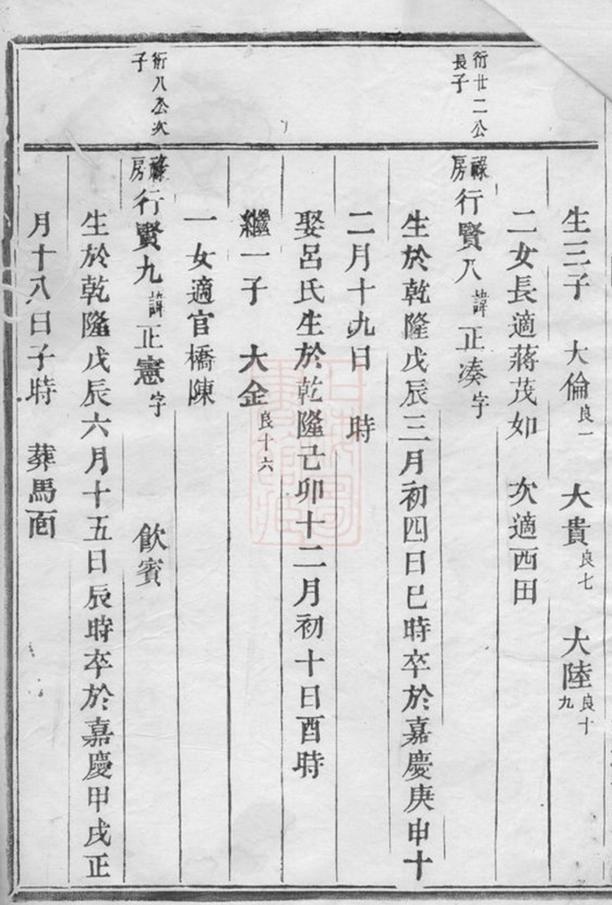 生三子 大倫良一 大貴良七 大陸良十九
二女長適蔣茂如 次適西田
衍廿二公長子
祿房行賢八諱正湊字
生於乾隆戊辰三月初四日巳時卒於嘉慶庚申十
二月十九日 時
娶呂氏生於乾隆己卯十二月初十日酉時
繼一子 大企良十六
一女適官橋陳
衍八公次子
祿房行賢九諱正憲字 飲賓
生於乾隆戊辰六月十五日辰時卒於嘉慶甲戌正
月十八日子時 葬馬面